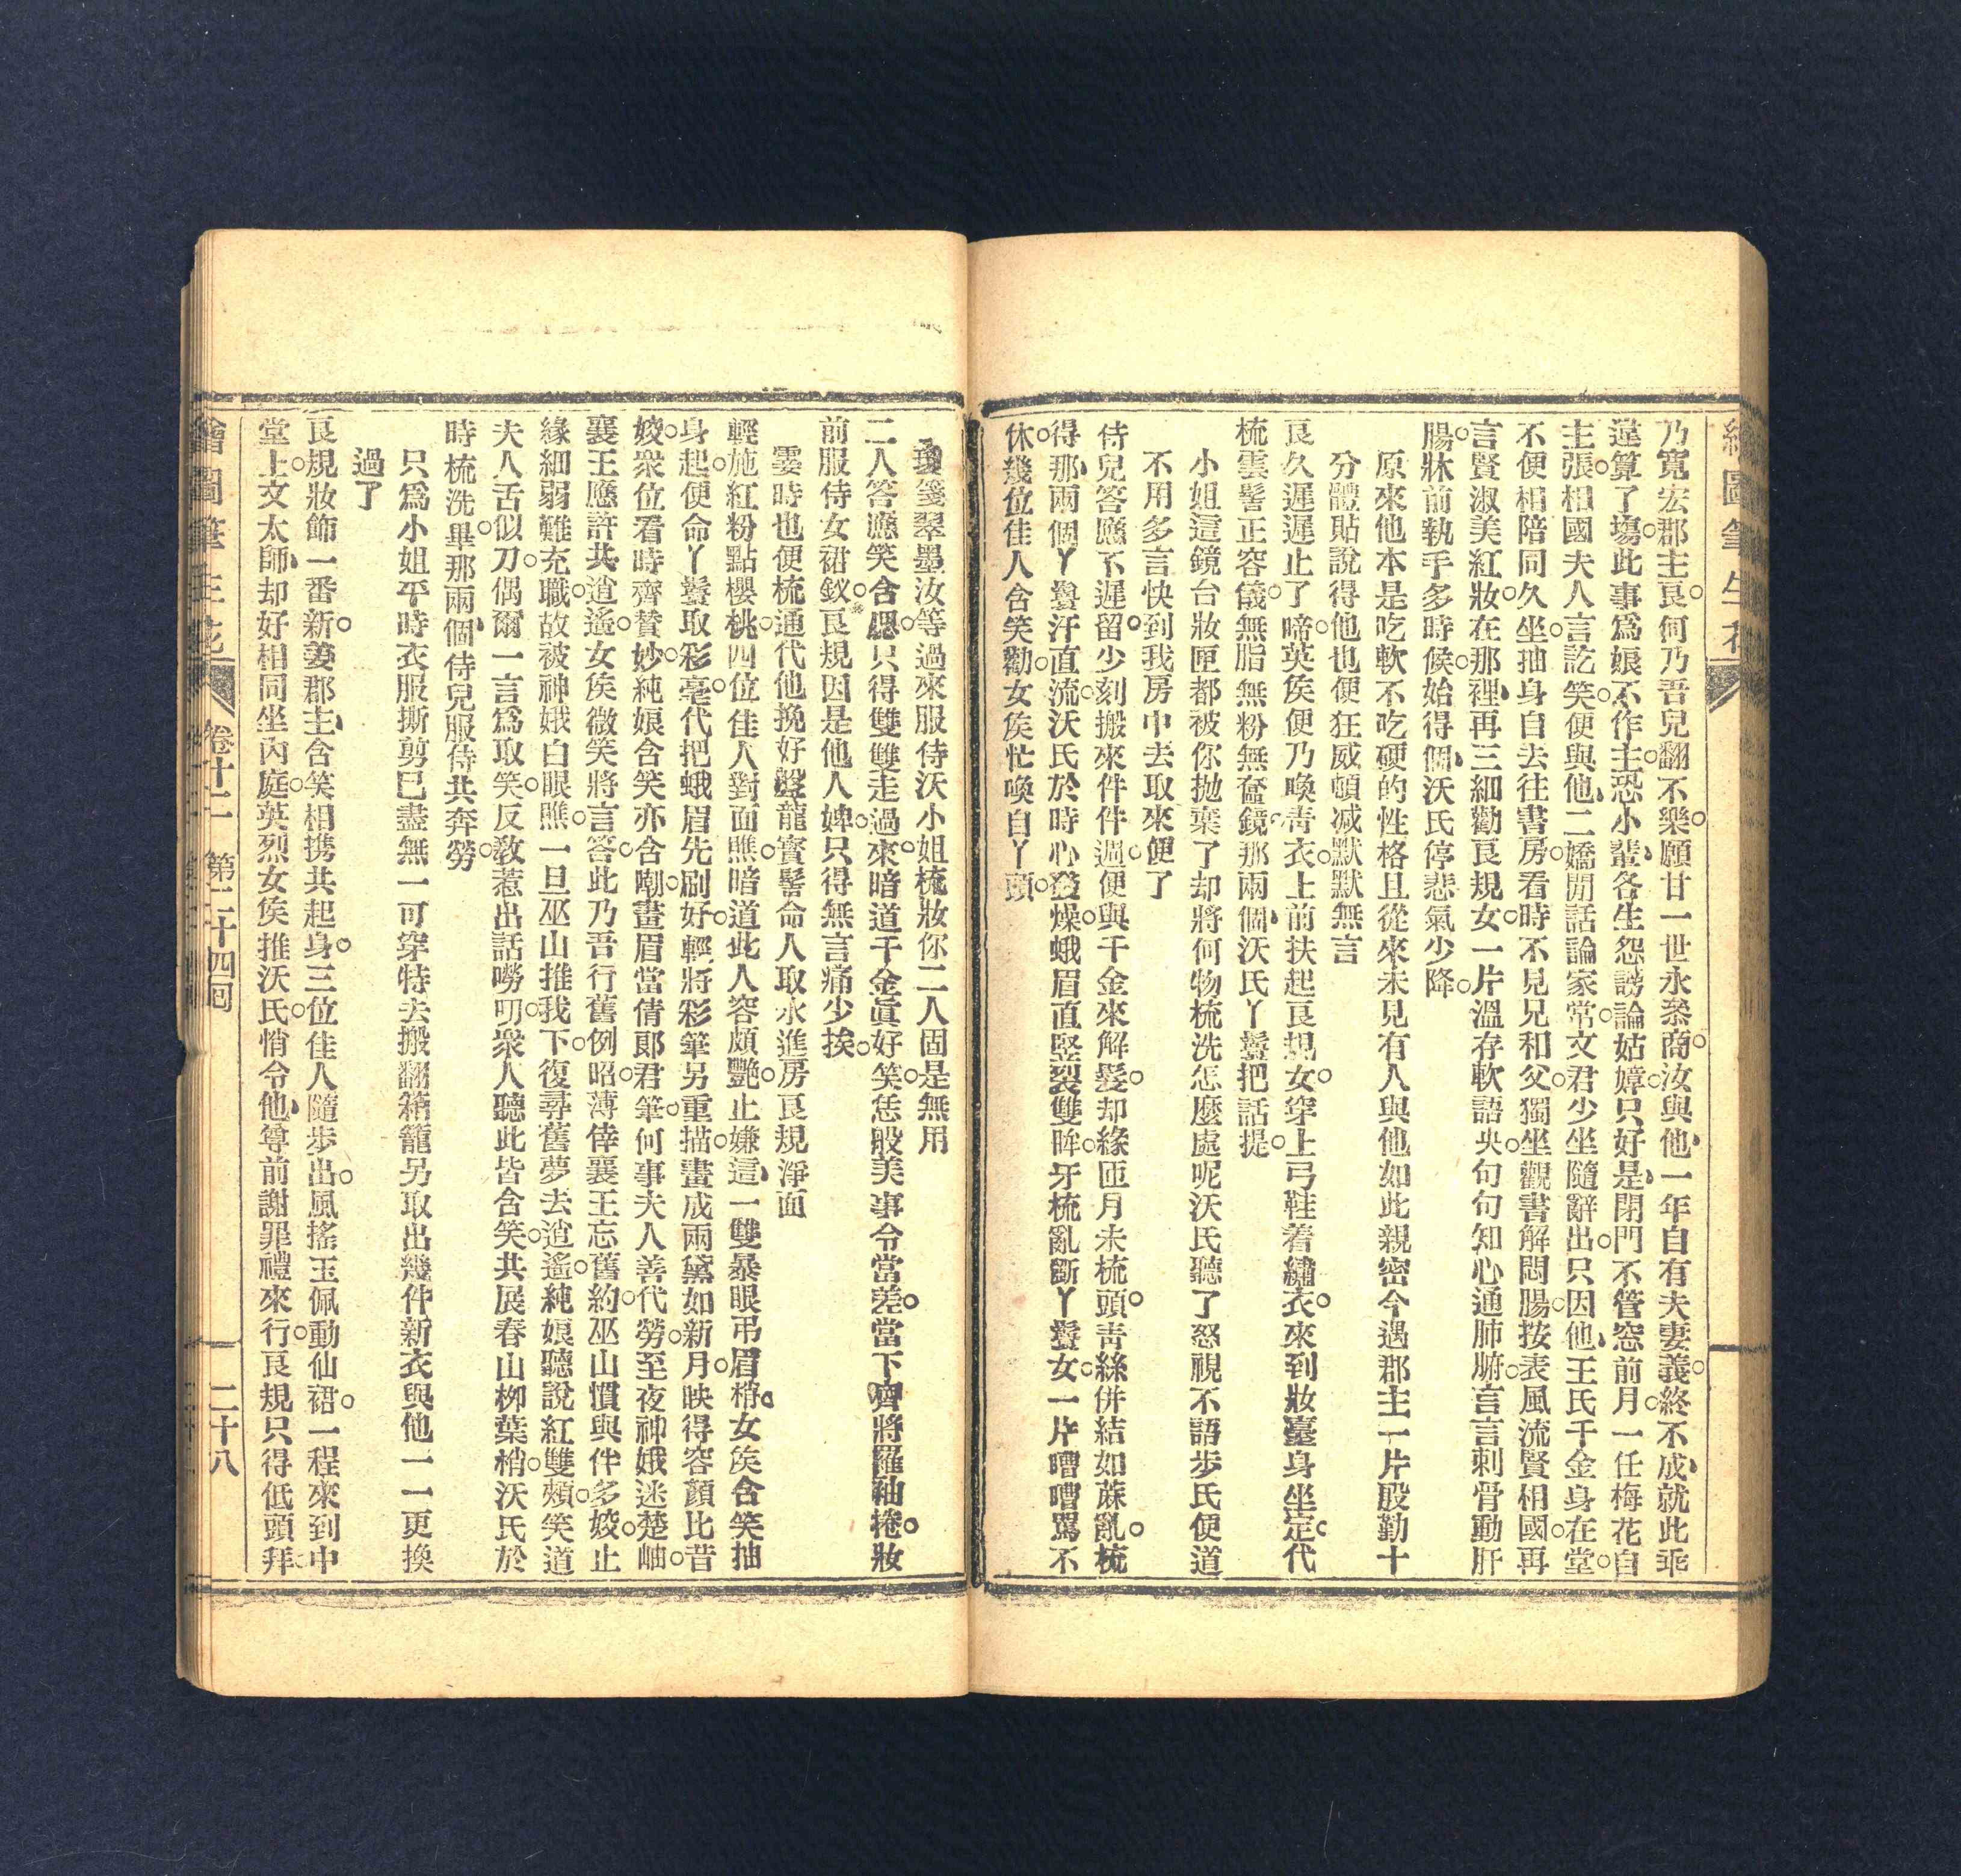 繪圖筆生花
乃寬宏郡主良何乃吾兒翻不樂願甘一世永參商汝與他一年自有夫妻義終不成就此乖
違算了塲此事爲娘不作主恐小輩各生怨謗論姑嫜只好是閉門不管窓前月一任梅花自
主張相國夫人言訖笑便與他二嬌閒話論家常文君少坐隨辭出只因他王氏千金身在堂
不便相陪同久坐抽身自去往書房看時不見兄和父獨坐觀書解悶腸按表風流賢相國再
言賢淑美紅妝在那裡再三細勸良規女一片溫存軟語央句句知心通肺腑言言刺骨動肝
腸牀前執手多時候始得個沃氏停悲氣少降
原來他本是吃軟不吃硬的性格且從來未見有人與他如此親密今遇郡主一片殷勤十
分體貼說得他也便狂威頓减默默無言
良久遲遲止了啼英侯便乃喚靑衣上前扶起良規女穿上弓鞋着繡衣來到妝臺身坐定代
梳雲髻正容儀無脂無粉無奩鏡那兩個沃氏丫鬟把話提
小姐這鏡台妝匣都被你抛棄了却將何物梳洗怎麼處呢沃氏聽了怒視不語步氏便道
不用多言快到我房中去取來便了
侍兒答應不遲留少刻搬來件件週便與千金來解髮却緣匝月未梳頭靑絲併結如蔴亂梳
得那兩個丫鬟汗直流沃氏於時心發燥蛾眉直竪裂雙眸牙梳亂斷丫鬟女一片嘈嘈罵不
休幾位佳人含笑勸女侯忙喚自丫頭
瓊箋翠墨汝等過來服侍沃小姐梳妝你二人固是無用
二人答應笑含愚只得雙雙走過來暗道千金眞好笑恁般美事令當差當下齊將羅袖捲妝
前服侍女裙釵良規因是他人婢只得無言痛少挨
霎時也便梳通代他挽好盤龍寳髻命人取水進房良規淨面
輕施紅粉點櫻桃四位佳人對面瞧暗道此人容頗艷止嫌這一雙暴眼弔眉梢女侯含笑抽
身起便命丫鬟取彩毫代把蛾眉先刷好輕將彩筆另重描畫成兩黛如新月映得容顏比昔
姣衆位看時齊賛妙純娘含笑亦含嘲畫眉當倩郞君筆何事夫人善代勞至夜神娥迷楚岫
襄王應許共逍遙女侯微笑將言答此乃吾行舊例昭薄倖襄王忘舊約巫山慣與伴多姣止
緣細弱難充職故被神娥白眼瞧一旦巫山推我下復尋舊夢去逍遙純娘聽說紅雙頰笑道
夫人舌似刀偶爾一言爲取笑反敎惹出話嘮叨衆人聽此皆含笑共展春山柳葉梢沃氏於
時梳洗畢那兩個侍兒服侍共奔勞
只爲小姐平時衣服撕剪已盡無一可穿特去搬翻箱籠另取出幾件新衣與他一一更換
過了
良規妝飾一番新姜郡主含笑相携共起身三位佳人隨步出風搖玉佩動仙裙一程來到中
堂上文太師却好相同坐內庭英烈女侯推沃氏悄令他尊前謝罪禮來行良規只得低頭拜
繪圖筆生花 卷十二 第二十四回 二十八